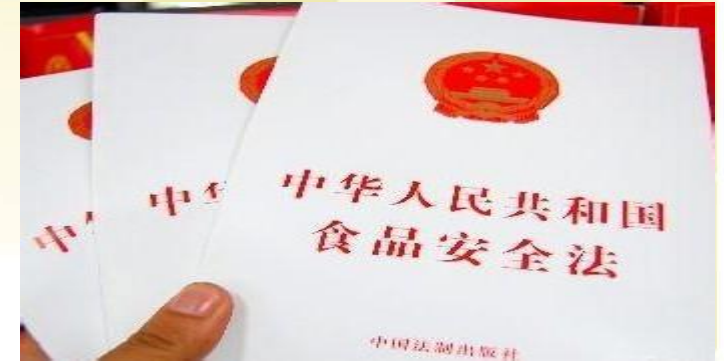 中华人民共和国
食品安全法
中国法制出版社
中华
中